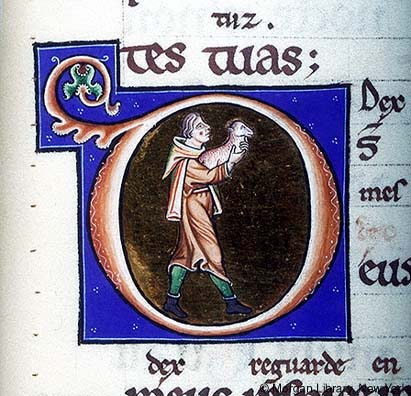 tuz.
tes tuas;
Dex
mes
Deus
dex reguarde en
meus
© Morgan Library, New York